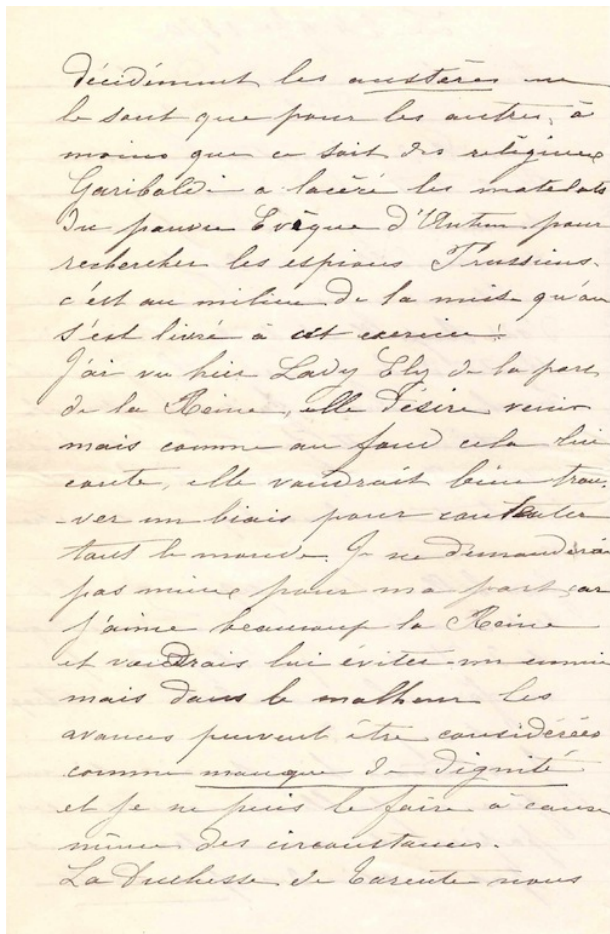 décidément les austères ne
le sont que pour les autres, à
moins que ce soit des religieux
Garibaldi a lacéré les matelats
du pauvre Evêque d'Autun pour
rechercher les espions Prussiens.
c'est au milieu de la nuit qu'on
s'est livré à cet exercice!
J'ai vu hier Lady Ely de la part
de la Reine, elle désire venir
mais comme au fond cela lui
coute, elle voudrait bien trou-
-ver un biais pour contenter
tout le monde. Je ne demanderai
pas mieux pour ma part, car
j'aime beaucoup la Reine
et voudrais lui éviter un ennui
mais dans le malheur les
avances peuvent être considérées
comme manque de dignité
et je ne puis le faire à cause
même des circonstances.
La Duchesse de Tarente nous